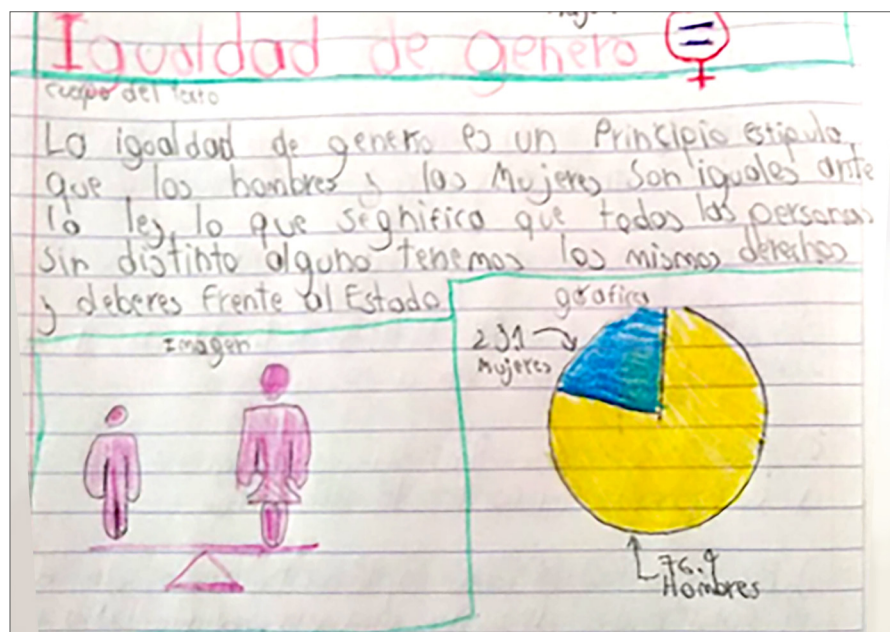 Igualdad de genero
cuerpo del texto
La igoaldad de genero es un Principio estipula
que los hombres y las Mujeres Son iguales ante
la ley, lo que segnifica que todas las personas
sin distinto alguno tenemos los mismos derechos
y deberes Frente al Estado
grafica
Imagen
231
Mujeres
76.9
Hombres